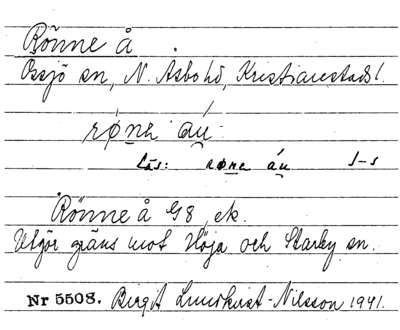 Rönne å.
Össjö sn, N. Åsbo hd, Kristianstads l.
rǿnə áu
Läs: rønə áu s-s
Rönne å G8, ek.
Utgör gräns mot Höja och Starby sn.
Nr 5508. Birgit Lundkvist-Nilsson 1941.